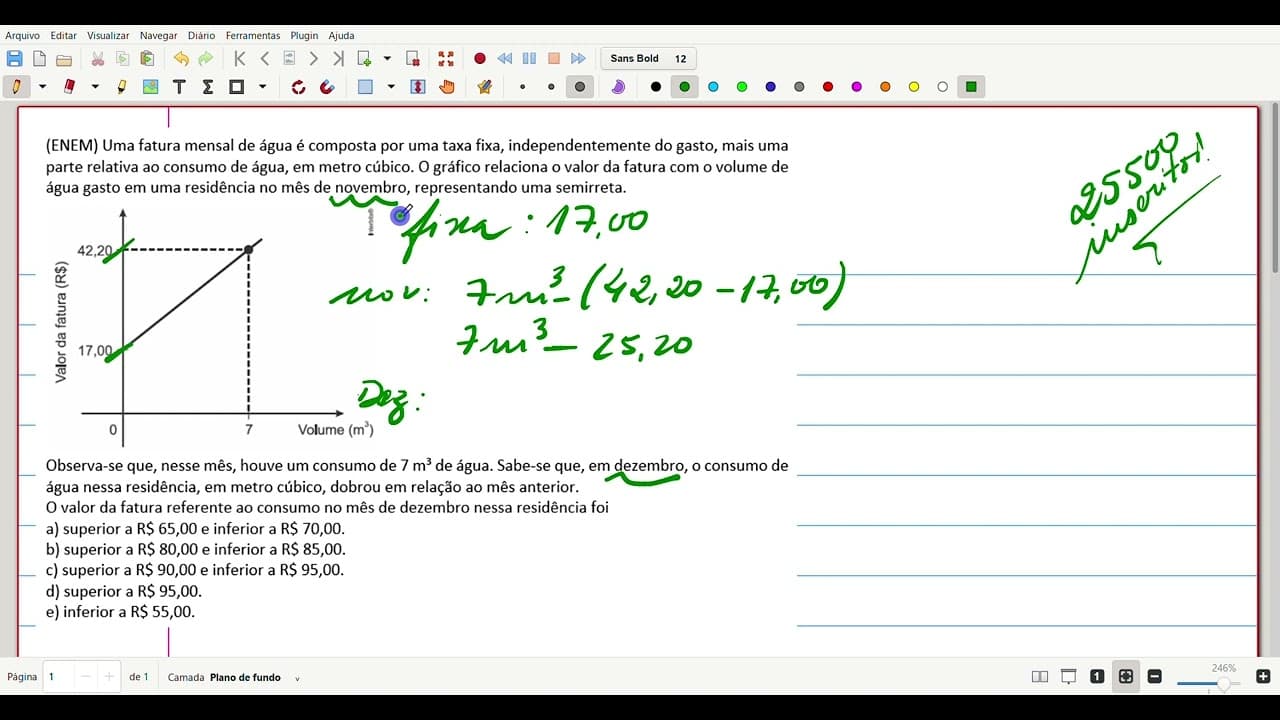 Arquivo Editar Visualizar Navegar Diário Ferramentas Plugin Ajuda
Sans Bold 12
(ENEM) Uma fatura mensal de água é composta por uma taxa fixa, independentemente do gasto, mais uma
parte relativa ao consumo de água, em metro cúbico. O gráfico relaciona o valor da fatura com o volume de
água gasto em uma residência no mês de novembro, representando uma semirreta.
25500
inscritos!
fixa: 17,00
42,20
Valor da fatura (R$)
nov: 7m³ – (42,20 – 17,00)
7m³ – 25,20
17,00
Dez:
0 7 Volume (m³)
Observa-se que, nesse mês, houve um consumo de 7 m³ de água. Sabe-se que, em dezembro, o consumo de
água nessa residência, em metro cúbico, dobrou em relação ao mês anterior.
O valor da fatura referente ao consumo no mês de dezembro nessa residência foi
a) superior a R$ 65,00 e inferior a R$ 70,00.
b) superior a R$ 80,00 e inferior a R$ 85,00.
c) superior a R$ 90,00 e inferior a R$ 95,00.
d) superior a R$ 95,00.
e) inferior a R$ 55,00.
Página 1 de 1 Camada Plano de fundo
246%